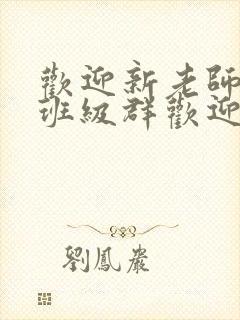 歡迎新老師
班級群歡迎
劉鳳巖